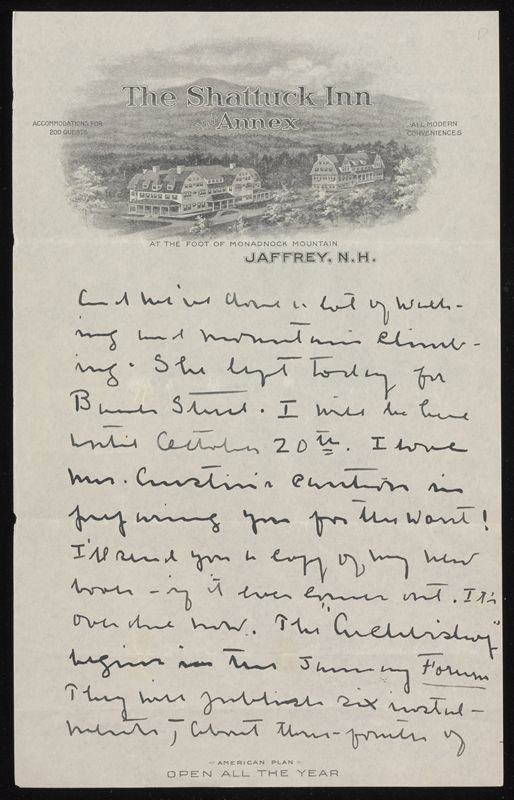 The Shattuck Inn
AND Annex
ACCOMMODATIONS FOR
200 GUESTS
ALL MODERN
CONVENIENCES
AT THE FOOT OF MONADNOCK MOUNTAIN
JAFFREY, N.H.
and we've done a lot of walk-
ing and mountain climb-
ing. She left today for
Bank Street. I will be here
until October 20th. I love
Mrs. Austin's caution in
preparing you for the worst!
I'll send you a copy of my new
book - if it ever comes out. It's
over due now. The "Archbishop"
begins in the January Forum
They will publish six instal-
ments, about three-fourths of
- AMERICAN PLAN -
OPEN ALL THE YEAR